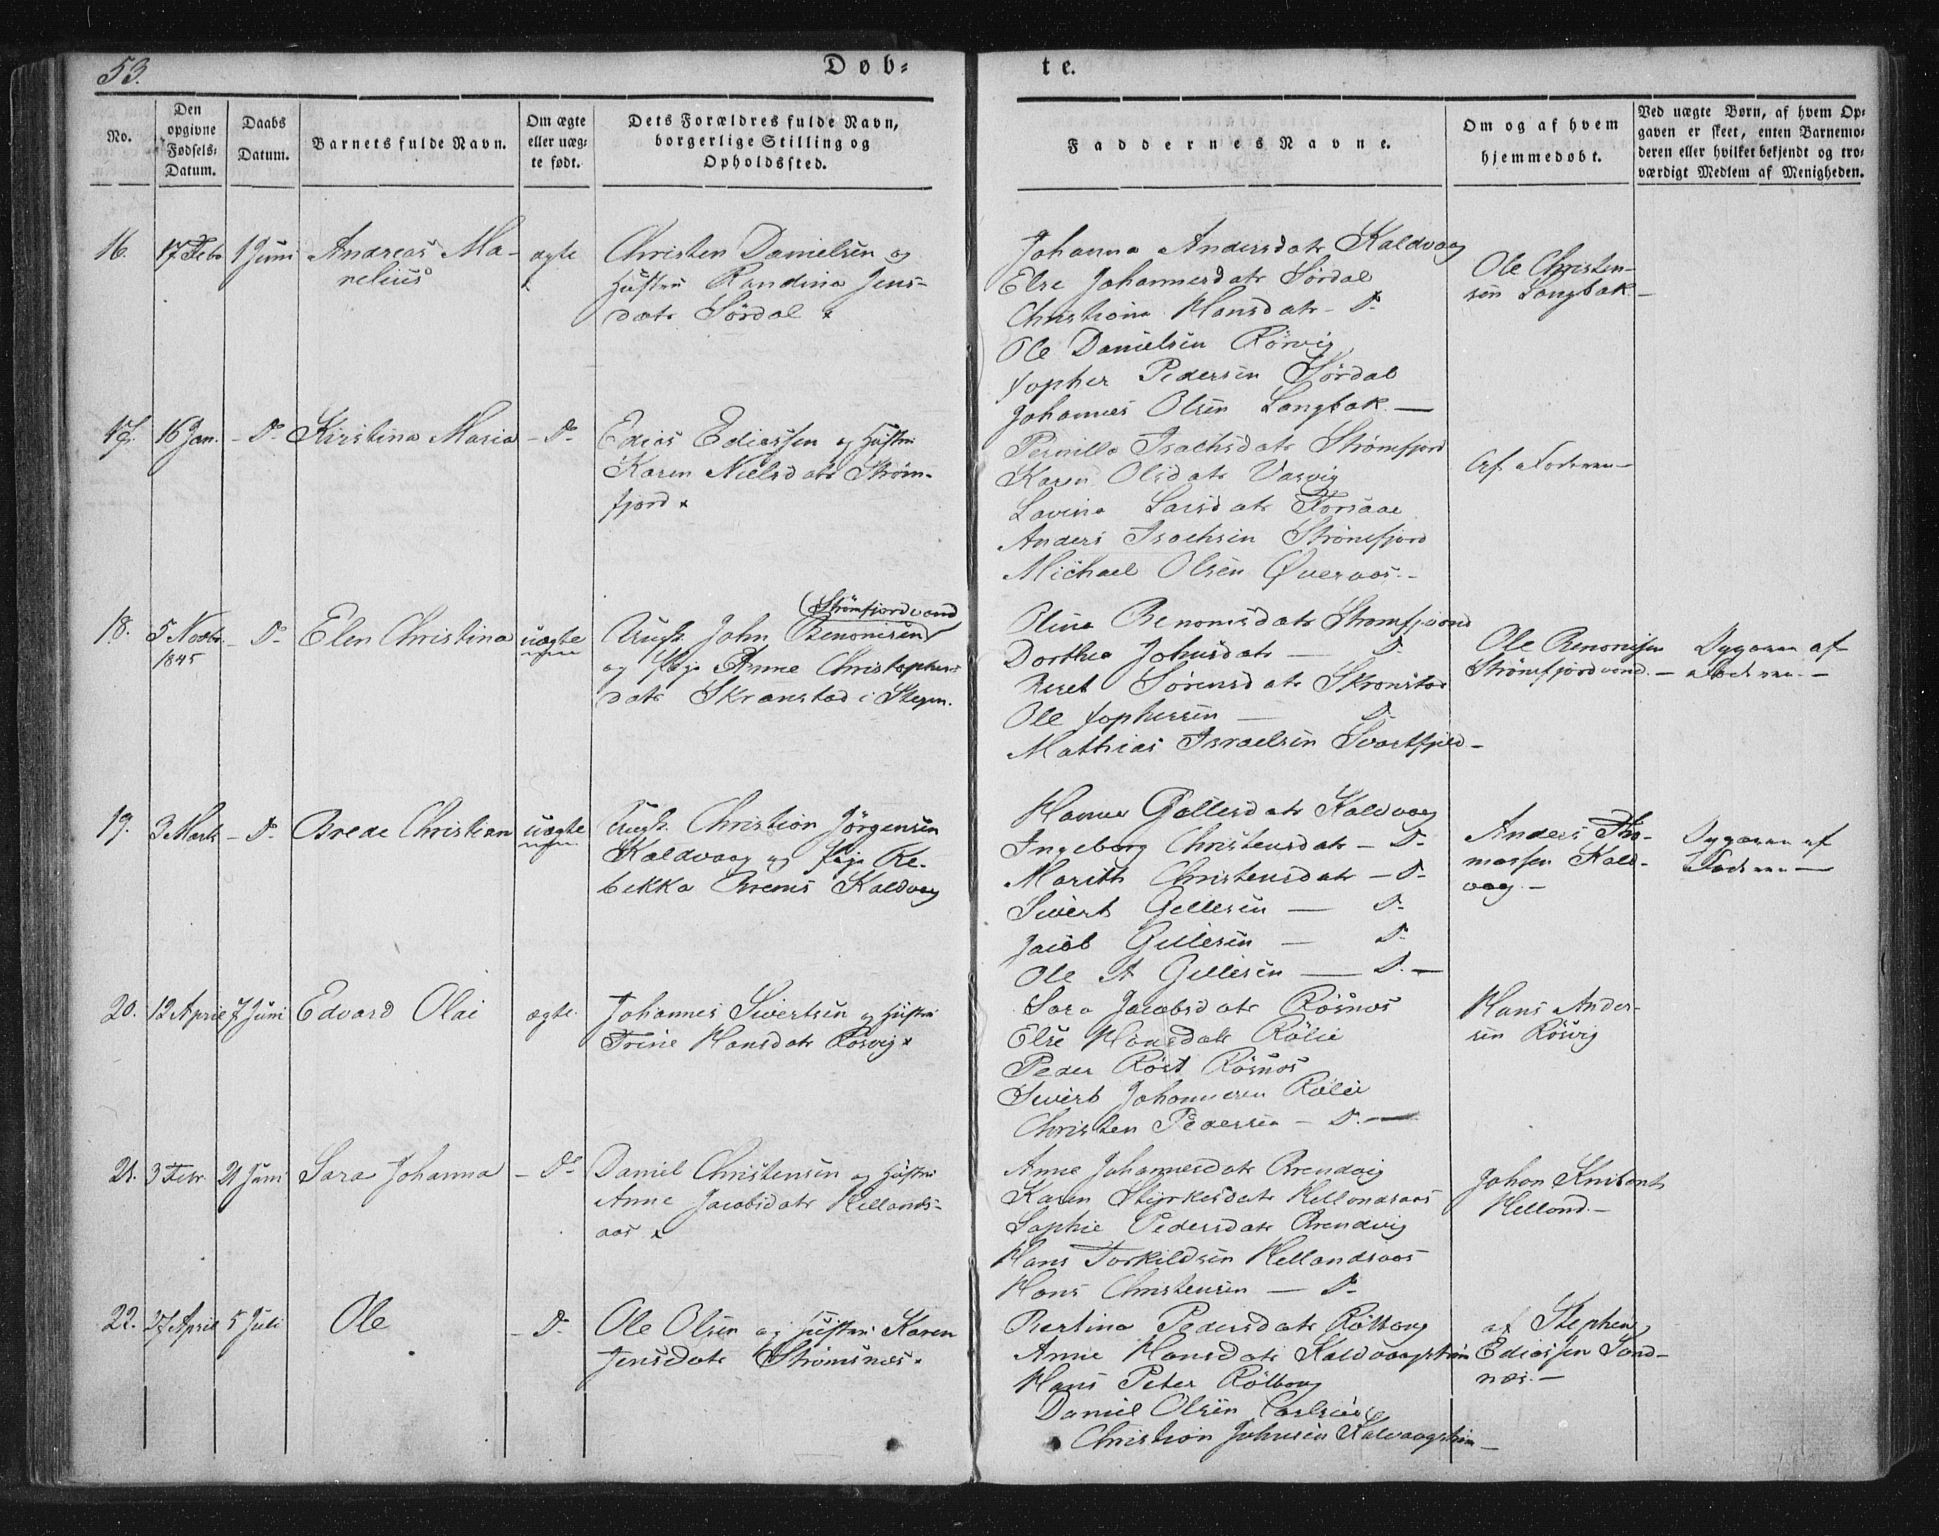 53.
Døb-
te.
No.
Den
opgivne
Fødsels-
Datum.
Daabs
Datum.
Barnets fulde Navn.
Om ægte
eller uæg-
te født.
Dets Forældres fulde Navn,
borgerlige Stilling og
Opholdssted.
Faddernes Navne.
Om og af hvem
hjemmedøbt.
Ved uægte Børn, af hvem Op-
gaven er skeet, enten Barnemo-
deren eller hvilket bekjendt og tro-
værdigt Medlem af Menigheden.
16.
17 Febr
1 Juni
Andreas Ma-
relius
ægte
Christen Danielsen og
Hustru Randina Jens-
datr Sørdal x
Johanna Andersdatr Kaldvaag
Else Johannesdatr Sørdal
Christiana Hansdatr - Do
Ole Danielsen Rørvig
Topher Pedersen Sørdal
Johannes Olsen Langbak -
Ole Christen-
sen Langbak -
17.
16 Jan.
- Do
Kirstina Maria
- Do
Edias Ediassen og Hustru
Karen Nielsdatr Strøm-
fjord x
Pernilla Isachsdatr Strømfjord
Karen Olsdatr Varvig
Lavina Larsdatr Forsaae
Anders Isachsen Strømfjord
Michael Olsen Øveraas. -
Af Faderen -
18.
5 Novbr.
1845
- Do
Elen Christina
uægte
Strømfjordvand
Ungk. John Benonisen
og Pige Anne Christophers-
datr Skranstad i Stegen.
Olina Benonisdatr Strømfjord
Dorthea Johnsdatr - Do
Beret Sørensdatr Skranstad
Ole Tophersen - Do
Mathias Israelsen Svartfjeld -
Ole Benonisen
Strømfjordvand. -
Opgaven af
Faderen. -
19.
3 Marts
- Do
Brede Christian
uægte
Ungk. Christian Jørgensen
Kaldvaag og Pige Re-
bekka Brems Kaldvaag
Hanna Gellesdatr Kaldvaag
Ingeborg Christensdatr - Do
Marith Christensdatr - Do
Sivert Gellesen - Do
Jacob Gellesen - Do
Ole A Gellesen - Do. -
Anders Tho-
massen Kald-
vaag. -
Opgaven af
Faderen -
20.
12 April
7 Juni
Edvard Olai
ægte
Johannes Sivertsen og Hustru
Trine Hansdatr Røsvig x
Sara Jacobsdatr Røsnæs
Else Hansdatr Rølie
Peder Røst Røsnæs
Sivert Johannesen Rølie
Christen Pedersen - Do. -
Hans Ander-
sen Røsvig
21.
3 Febr.
21 Juni
Sara Johanna
- Do
Daniel Christensen og Hustru
Anne Jacobsdatr Hellands-
aas x
Anne Johannesdatr Brendvig
Karen Styrkesdatr Hellandsaas
Sophie Pedersdatr Brendvig
Hans Torkildsen Hellandsaas
Hans Christensen - Do
Johan
Helland. -
22.
27 April
5 Juli
Ole
- Do
Ole Olsen og Hustru Karen
Jensdatr Strømsnæs x
Bertina Pedersdatr Røttvaag
Anne Hansdatr Kaldvaagstrøm
Hans Peter
Daniel Olsen
Christian Johnsen Kalvaagstrøm -
af Stephen
Ediassen Sand-
næs. -